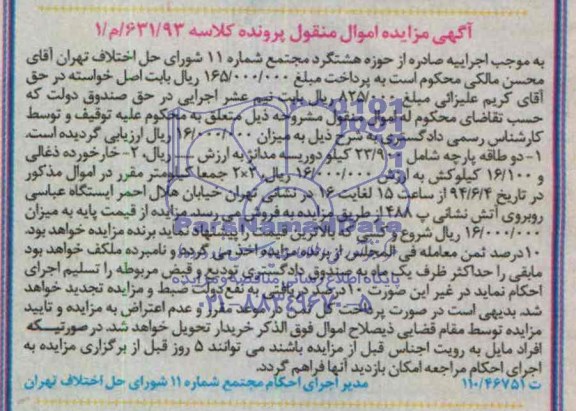 آگهی مزایده اموال منقول پرونده کلاسه ۶۳۱/۹۳/م/۱
به موجب اجراییه صادره از حوزه هشتگرد مجتمع شماره ۱۱ شورای حل اختلاف تهران آقای
محسن مالکی محکوم است به پرداخت مبلغ ۱۶۵/۰۰۰/۰۰۰ ریال بابت اصل خواسته در حق
آقای کریم علیزائی مبلغ ۸۲۵/۰۰۰ ریال بابت نیم عشر اجرایی در حق صندوق دولت که
حسب تقاضای محکوم له اموال منقول مشروحه ذیل متعلق به محکوم علیه توقیف و توسط
کارشناس رسمی دادگستری به شرح ذیل به میزان ۱۶/۰۰۰/۰۰۰ ریال ارزیابی گردیده است.
۱- دو طاقه پارچه شامل ۲۳/۹۰۰ کیلو دوریسه مدانز به ارزش ــ ریال، ۲- خارخورده ذغالی
و ۱۶/۱۰۰ کیلوکش به ارزش ۱۶/۰۰۰/۰۰۰ ریال، ۲×۲ جمعا کیلومتر مقرر در اموال مذکور
در تاریخ ۹۴/۶/۴ از ساعت ۱۵ لغایت ۱۶ در نشانی تهران خیابان هلال احمر ایستگاه عباسی
روبروی آتش نشانی پ ۴۸۸ از طریق مزایده به فروش می رسد. مزایده از قیمت پایه به میزان
۱۶/۰۰۰/۰۰۰ ریال شروع و کسی که بالاترین قیمت را پیشنهاد نماید برنده مزایده خواهد بود.
۱۰ درصد ثمن معامله فی المجلس از برنده مزایده اخذ می گردد و نامبرده مکلف خواهد بود
مابقی را حداکثر ظرف یک ماه به صندوق دادگستری تودیع و قبض مربوطه را تسلیم اجرای
احکام نماید در غیر این صورت ۱۰ درصد دریافتی به نفع دولت ضبط و مزایده تجدید خواهد
شد. بدیهی است در صورت پرداخت کل ثمن در موعد مقرر و عدم اعتراض به مزایده و تایید
مزایده توسط مقام قضایی ذیصلاح اموال فوق الذکر خریدار تحویل خواهد شد. در صورتیسکه
افراد مایل به رویت اجناس قبل از مزایده باشند می توانند ۵ روز قبل از برگزاری مزایده به
اجرای احکام مراجعه امکان بازدید آنها فراهم گردد.
ت ۱۱۰/۴۶۷۵۱ مدیر اجرای احکام مجتمع شماره ۱۱ شورای حل اختلاف تهران
ParsNamadData
پایگاه اطلاع رسانی مناقصه و مزایده
۰۲۱-۸۸۳۴۹۶۷۰-۵